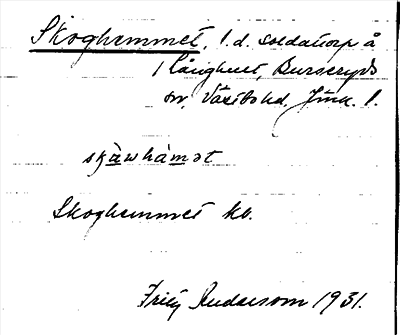 Skoghemmet, l.d. soldattorp å
Långhult, Burseryds
sn, Västbo hd, Jönk. l.
skàwhàmət
Skoghemmet kb.
Fritz Andersson 1931.